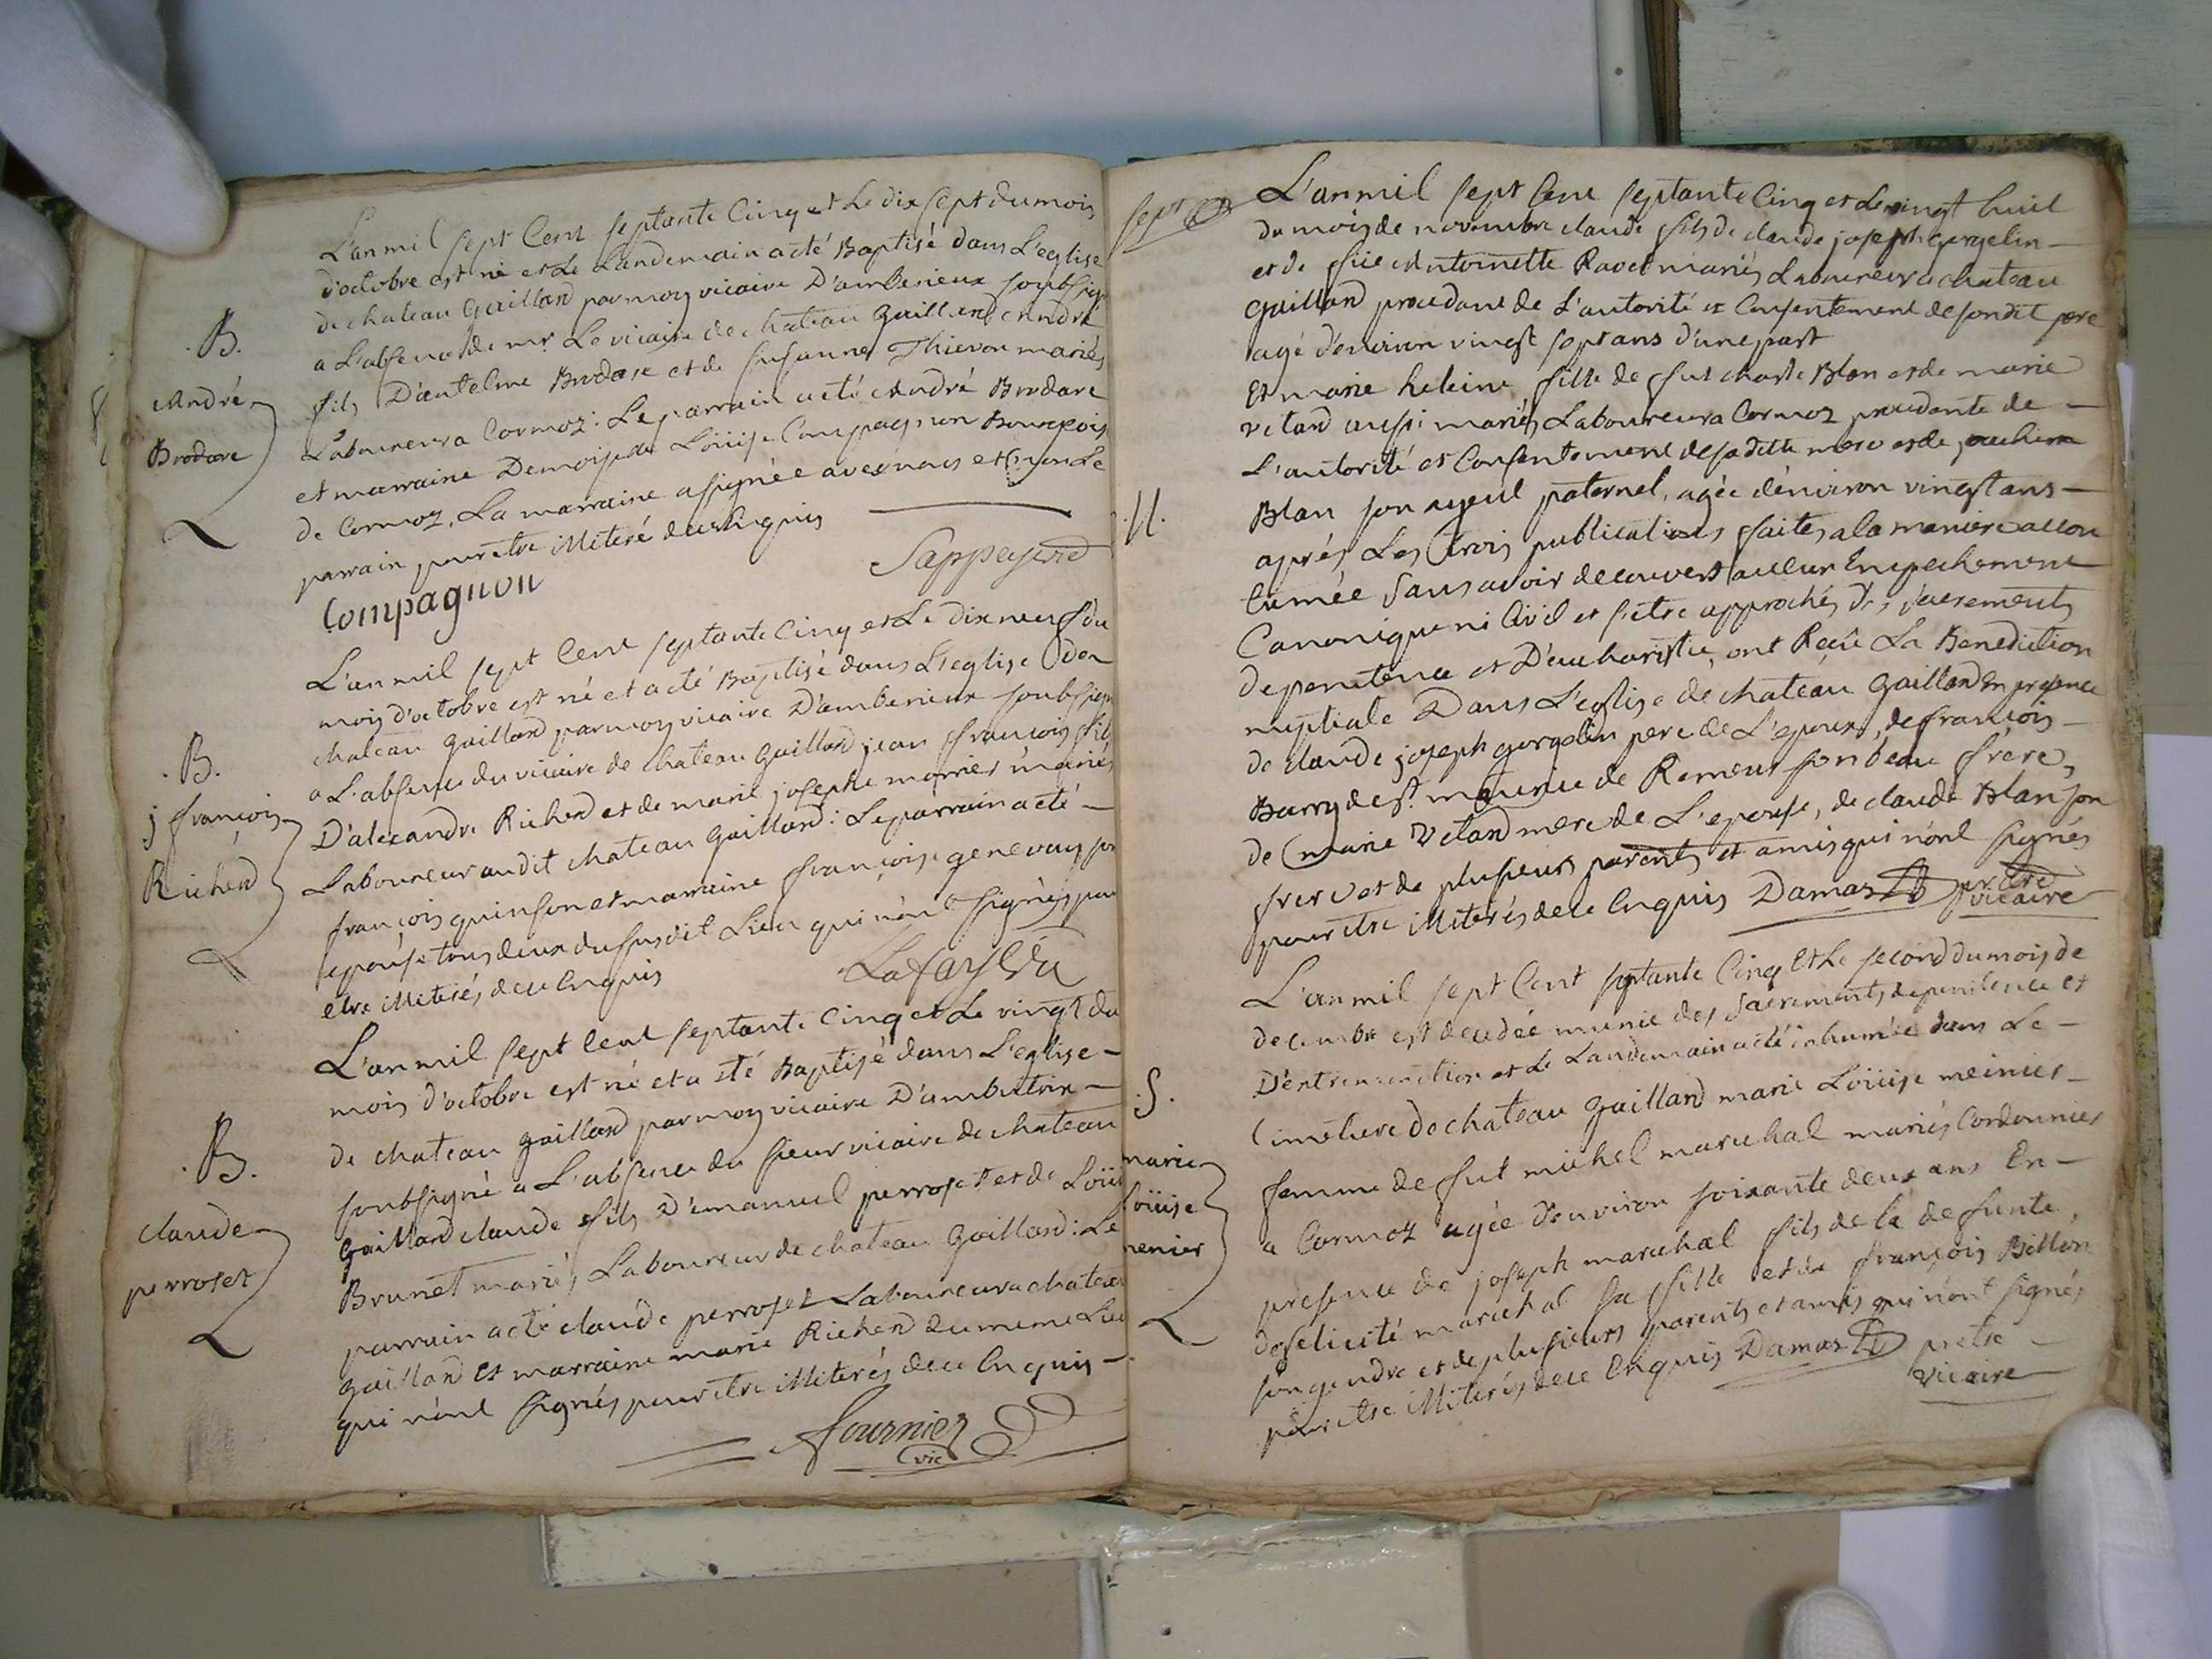 L'an mil sept Cent septante Cinq et Le dix sept du mois
d'octobre est né et Le Landemain a eté Baptisé dans L'eglise
de chateau Gaillard par moy vicaire D'amberieux soubsig
a L'absence de mr. Le vicaire de chateau Gaillard André
fils D'antelme Brodare et de susanne Thievon mariés
Laboureur a Cormoz: Le parrain a eté André Brodare
et marraine Demoiselle Loüise Compagnon Bourgeois
de Cormoz, La marraine a signée avec nous et non Le
parrain pour etre illiteré de ce Enquis
Compagnon Sappeÿ
.B.
André
Brodare
L'an mil sept Cent septante Cinq et Le dix neuf du
mois d'octobre est né et a eté Baptisé dans L'eglise de
chateau Gaillard par moy vicaire D'amberieux soubsign
a L'absence du vicaire de chateau Gaillard jean françois fils
D'alexandre Richerd et de marie josephe marrier mariés
Laboureur audit chateau Gaillard: Le parrain a eté
françois quinson et marraine françoise genevay son
epouse tous deux du susdit Lieu qui n'ont signés pour
etre illiterés de ce Enquis
.B.
j françois
Richerd
L'an mil sept Cent septante Cinq et Le vingt du
mois d'octobre est né et a eté Baptisé dans L'eglise
de chateau Gaillard par moy vicaire D'ambutrix
soubsigné a L'absence du sieur vicaire de chateau
Gaillard claude fils D'emanuel perroset et de Loüi
Brunet mariés Laboureur de chateau Gaillard: Le
parrain a eté claude perroset Laboureur a chateau
Gaillard et marraine marie Richerd du meme Lieu
qui n'ont signés pour etre illiterés de ce Enquis
fournier
vic
.B.
claude
perroset
sept
L'an mil sept Cent septante Cinq et Le vingt huit
du mois de novembre claude fils de claude joseph gorgelin
et de füe Antoinette Ravet mariés Laboureur a chateau
gaillard procedant de L'autorité et Consentement de sondit pere
agé d'environ vingt sept ans d'une part
Et marie heleine fille de fut charle Blan et de marie
vetard aussi mariés Laboureur a Cormoz procedante de
L'autorité et Consentement de sa ditte mere et de joachim
Blan son ayeul paternel, agée d'environ vingt ans
aprés Les trois publications faites a la maniere accou
tumée sans avoir decouvert aucun Empechement
Canonique ni Civil et s'etre approchés des sacrements
de penitence et D'eucharistie, ont Reçû La Benediction
nuptiale Dans L'eglise de chateau Gaillard En presence
de claude joseph gorgelin pere de L'epoux, de françois
Barry de st. maurice de Remens son beau frere,
de marie vetard mere de L'epouse, de claude Blan son
frere et de plusieurs parents et amis qui n'ont signés
pour etre illiterés de ce Enquis Damas prêtre
vicaire
.M.
L'an mil sept Cent septante Cinq Et Le second du mois de
decembre est decedée munie des sacrements de penitence et
D'extremeonction et Le Landemain a eté inhumée dans Le
Cimetiere de chateau Gaillard marie Loüise meinier
femme de fut michel marechal mariés Cordonnier
a Cormoz agée d'environ soixante deux ans En
presence de joseph marechal fils de la defunte,
de felicité marechal sa fille et de françois Billon
son gendre et de plusieurs parents et amis qui n'ont signés
pour etre illiterés de ce Enquis Damas prêtre
vicaire
.S.
marie
Loüise
menier